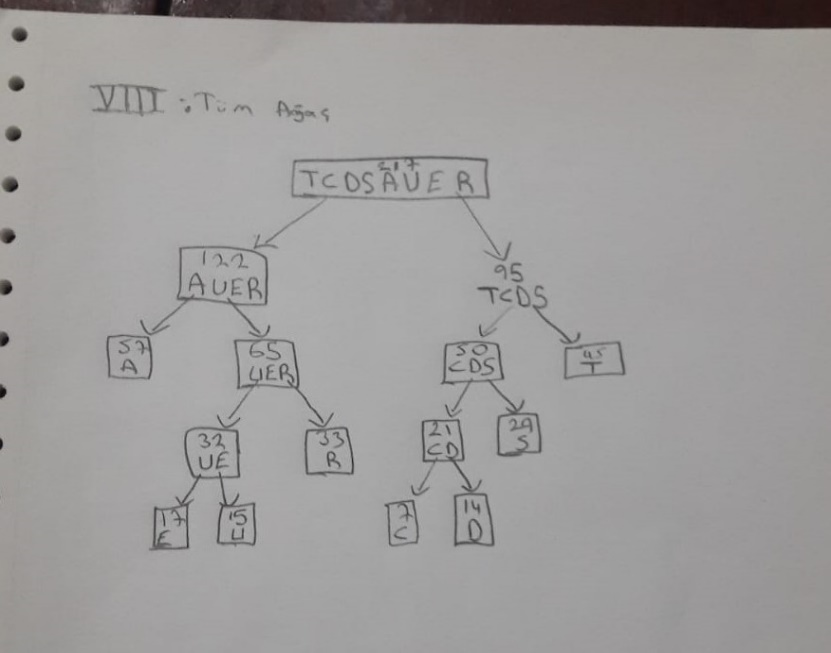 VIII : Tüm Ağaç
217
TCDSAUER
122
AUER
95
TCDS
57
A
65
UER
50
CDS
45
T
32
UE
33
R
21
CD
29
S
17
E
15
U
7
C
14
D